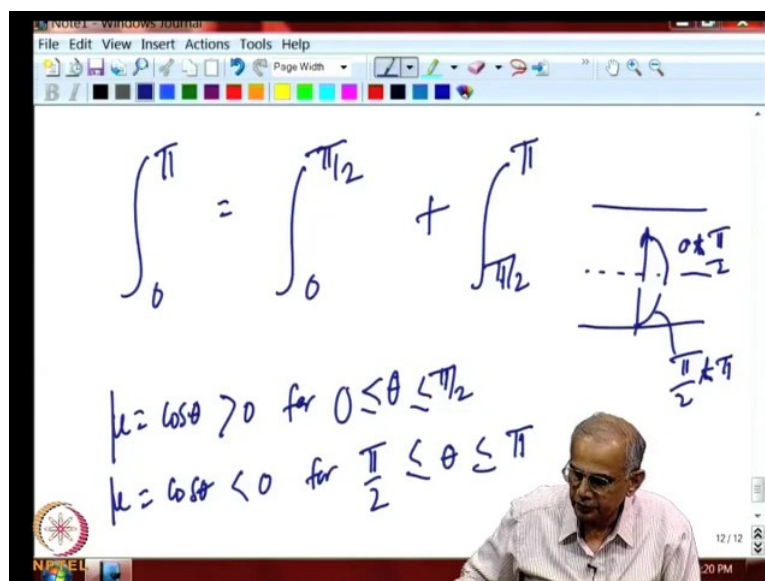 Note1 - Windows Journal
File Edit View Insert Actions Tools Help
Page Width
B I
∫₀^π = ∫₀^{π/2} + ∫_{π/2}^π
0 to π/2
π/2 to π
μ = cosθ > 0 for 0 ≤ θ ≤ π/2
μ = cosθ < 0 for π/2 ≤ θ ≤ π
12 / 12
NPTEL
:20 PM